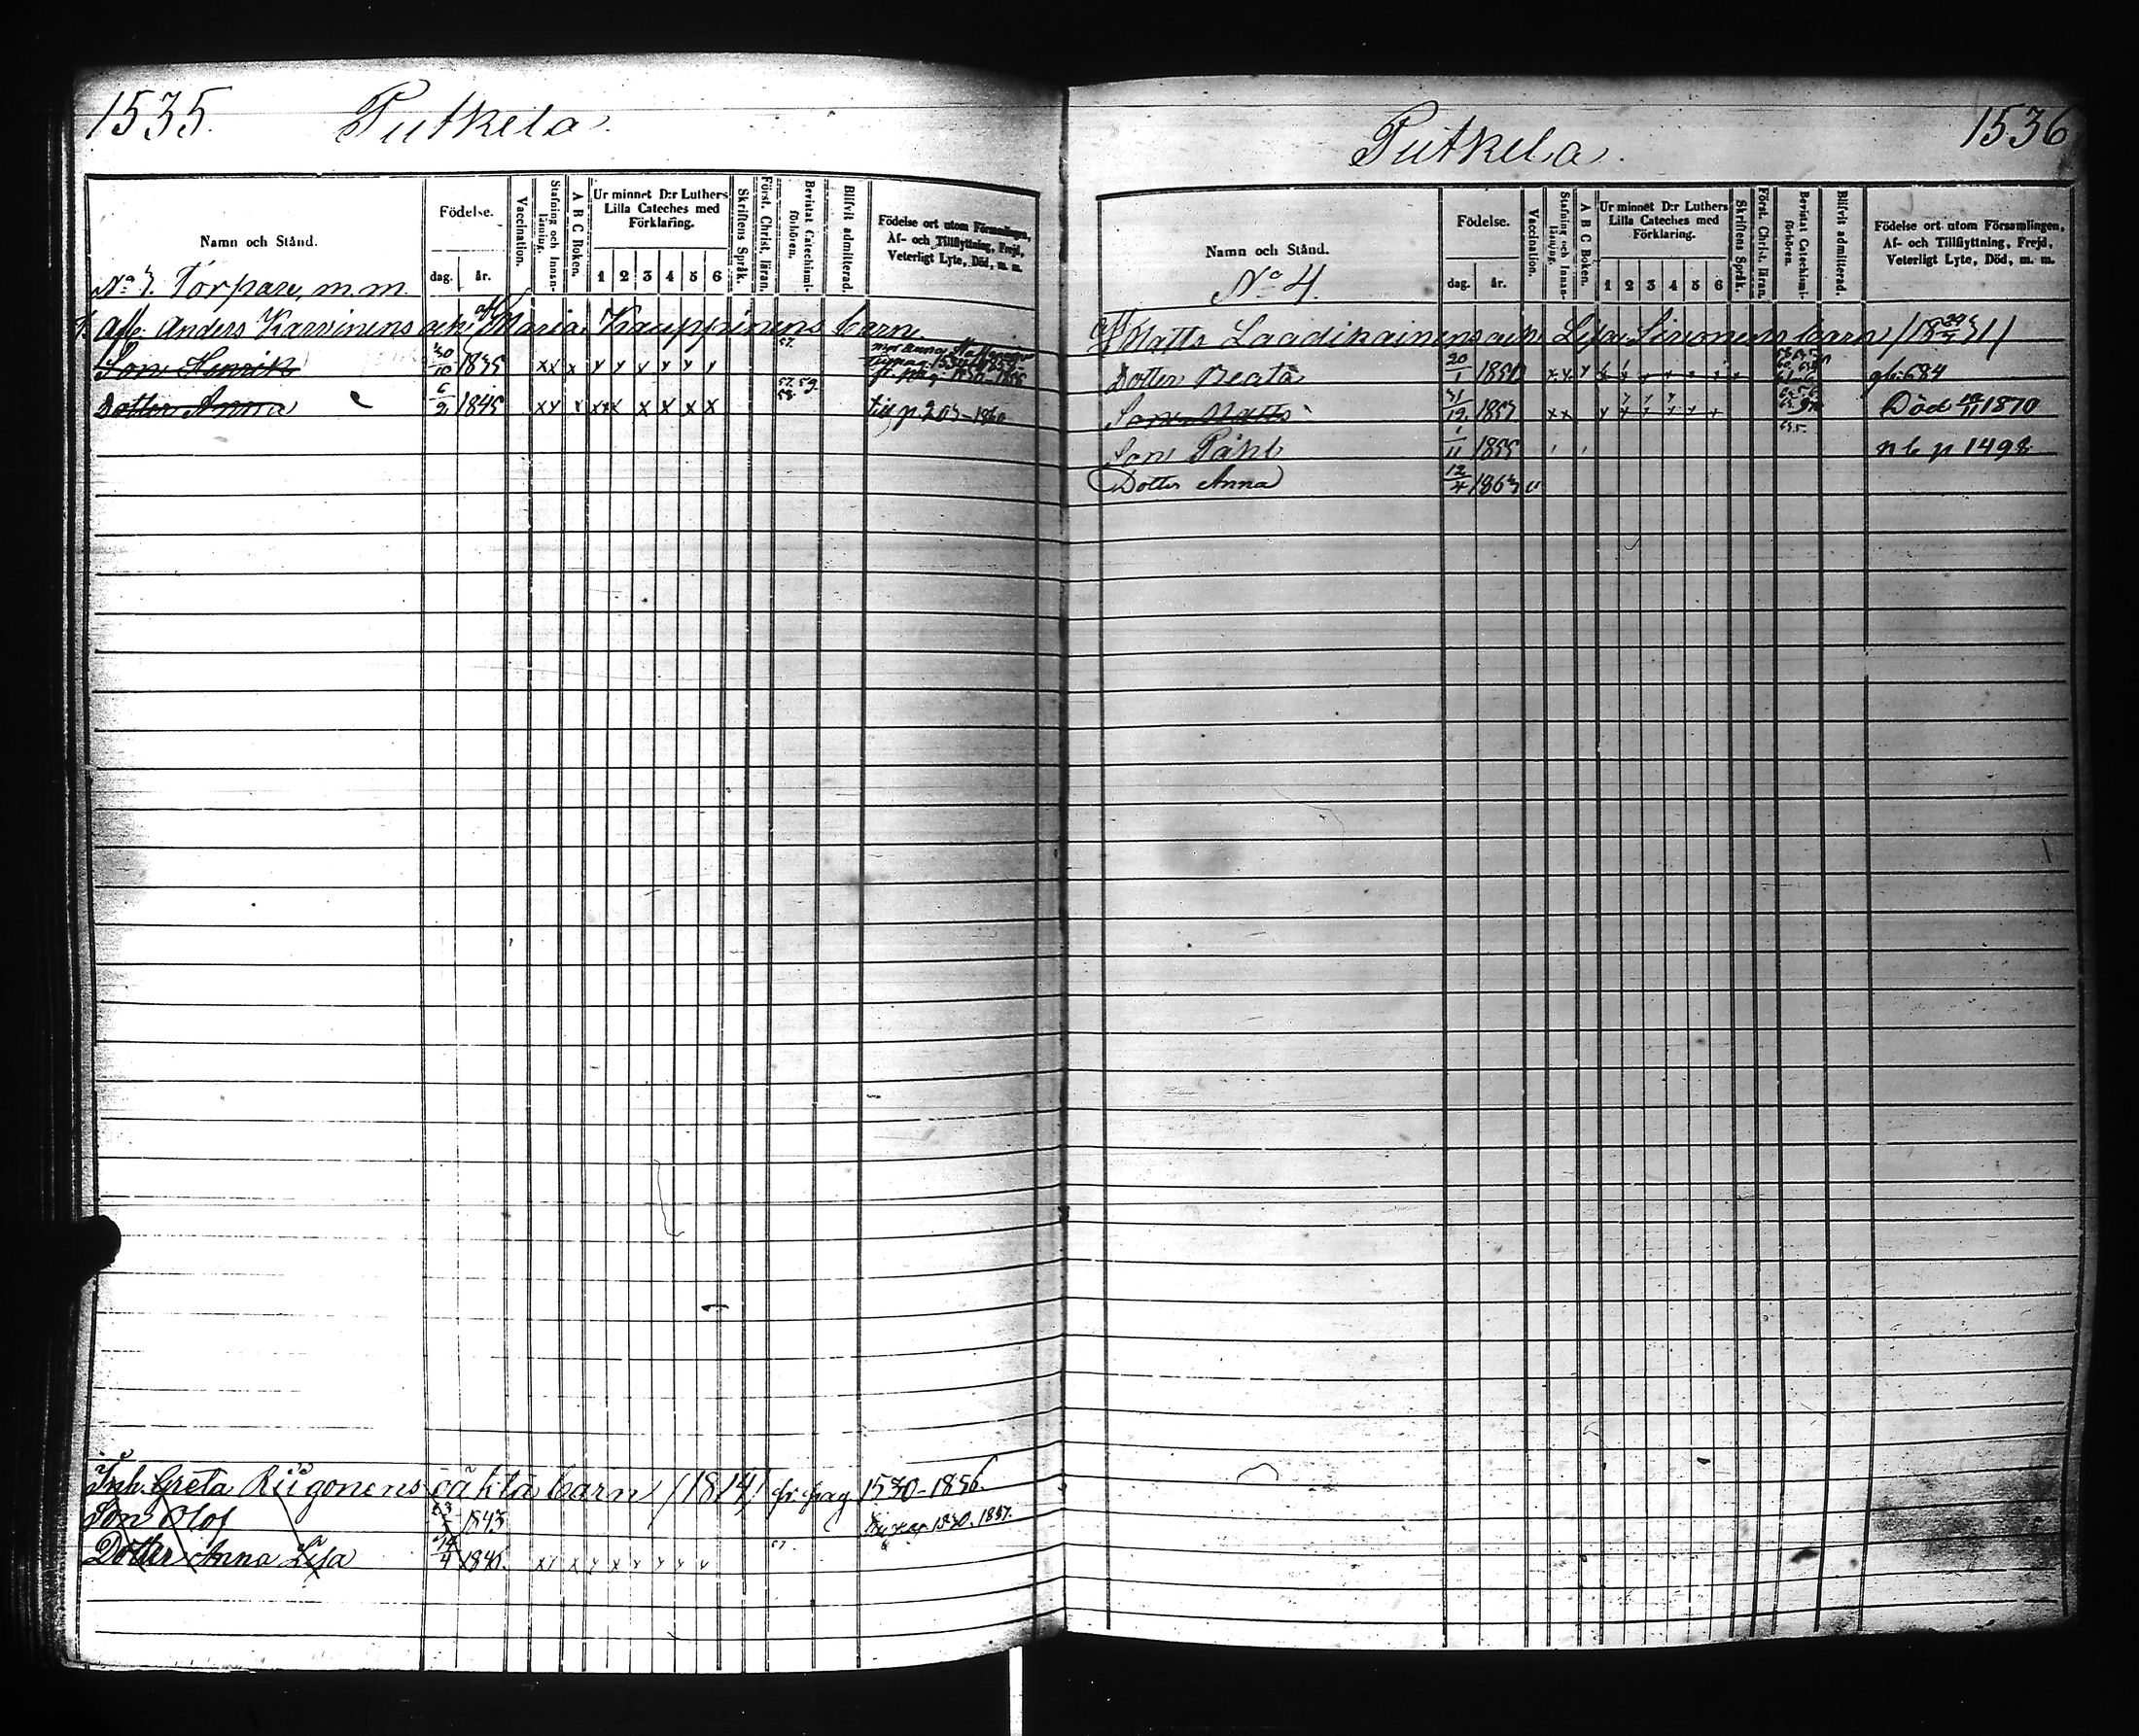 1535. Putkela.
Namn och Stånd.
Födelse.
dag. år.
Vaccination.
Stafning och Innanläsning.
A B C Boken.
Ur minnet D:r Luthers Lilla Cateches med Förklaring.
1 2 3 4 5 6
Skriftens Språk.
Först. Christ. läran.
Bevistat Catechismiförhören.
Blifvit admitterad.
Födelse ort utom Församlingen, Af- och Tillflyttning, Frejd, Veterligt Lyte, Död, m. m.
No 3. Torpare, m.m.
Afl. Anders Karvinens och Maria Kauppinens barn
Son Henrik 30/10 1835 x x x 57.
Dotter Anna 6/2 1845 x x x x x x x x x 57. 59. 58 till p 203-1860
Inh. Greta Riigonens oäkta barn (1814) fr. pag 1530-1856.
Son Olof 1843
Dotter Anna Lisa 1846.
1536
Putkela.
Namn och Stånd.
Födelse.
dag. år.
Vaccination.
Stafning och Innanläsning.
A B C Boken.
Ur minnet D:r Luthers Lilla Cateches med Förklaring.
1 2 3 4 5 6
Skriftens Språk.
Först. Christ. läran.
Bevistat Catechismiförhören.
Blifvit admitterad.
Födelse ort utom Församlingen, Af- och Tillflyttning, Frejd, Veterligt Lyte, Död, m. m.
No 4.
Matts Laadikainens och Lisa Sironens barn
Dotter Beata 20/1 1850 684
Son Matts 31/12 1853 Död 1870
Son Påhl 1/11 1855 p 1498
Dotter Anna 12/4 1863